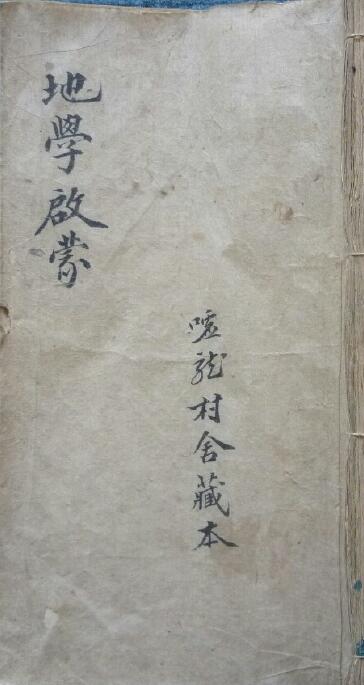 地學啟蒙
嘘龍村舍藏本